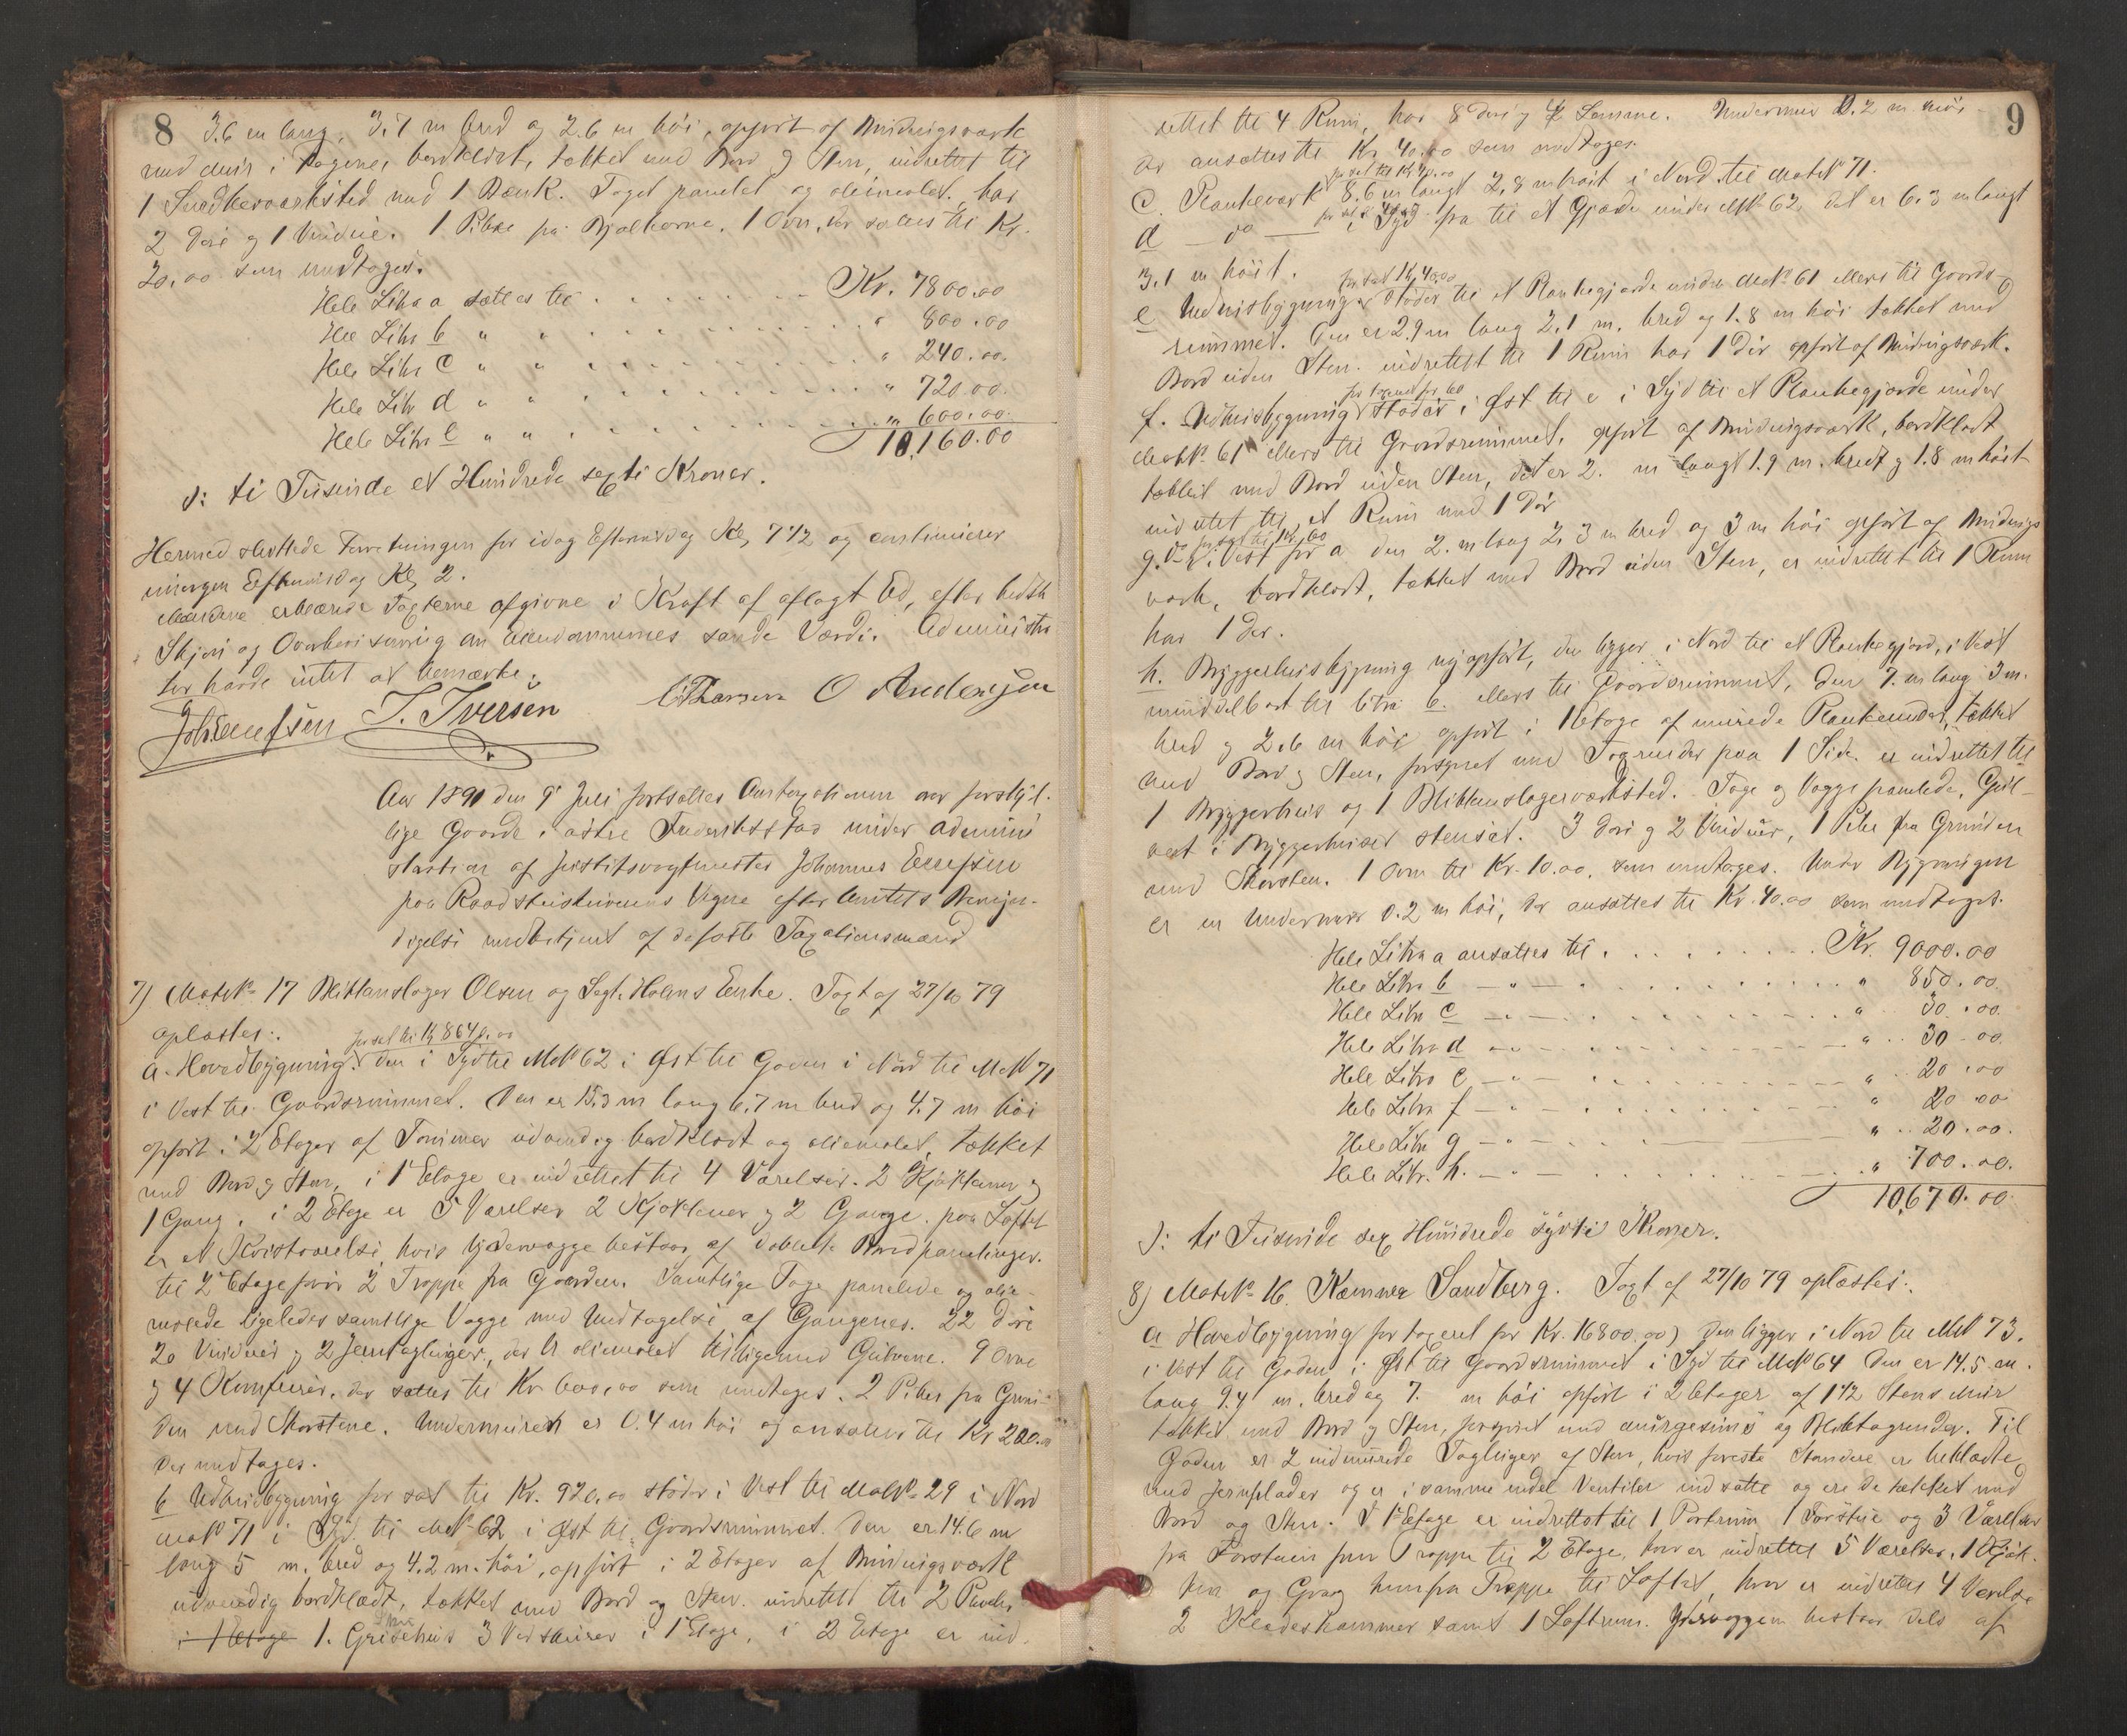 8
3.6 m lang, 3.1 m bred og 2.6 m høi, opført af Bindingsværk
med Mur i Fagene, bordklædt, tækket med Bord og Sten, indrettet til
1 Snedkerværksted med 1 Bænk. Taget panelet og oliemalet, har
2 Døre og 1 Vindue. 1 Pibe fra Bjælkerne. 1 Ovn, der sættes til Kr.
20.00 som undtages.
Hele Litra a sættes til . . . . . . . Kr. 7800.00
Hele Litra b " " . . . . . . . " 800.00
Hele Litr C " " . . . . . . . " 240.00.
Hele Litr d " " . . . . . . . " 720.00.
Hele Litra e " " . . . . . . . " 600.00.
10,160.00
ɔ: ti Tusinde et Hundrede sexti Kroner.
Hermed sluttede Forretningen for idag Eftermiddag Kl. 7 1/2 og continuerer
morgen Eftermiddag Kl. 2.
Mændene erklærede Taxterne afgivne i Kraft af aflagt Ed, efter bedste
Skjøn og Overbevisning om Eiendommenes sande Værdi. Administra
tor havde intet at bemærke.
Joh Enefsen T. Iversen C Thorsen O Andersen
Aar 1891 den 9de Juli fortsattes Omtaxationen over forskjel-
lige Gaarde i østre Frederiksstad under Admini
stration af Justitsvagtmester Johannes Enefsen
paa Raadstuskriverens Vegne efter Amtets Bemyn-
digelse medbetjent af de faste Taxationsmænd
7) MatrNo 17 Blikkenslager Olsen og Segl. Holms Enke. Taxt af 27/10 79
oplæstes:
forsat til Kr 8640.00
a. Hovedbygning. Den i Syd til MNo 62 i Øst til Gaden i Nord til MNo 71
i Vest til Gaardsrummet. Den er 15.3 m lang 6.7 m bred og 4.7 m høi
opført i 2 Etager af Tømmer udvendig bordklædt og oliemalet, tækket
med Bord og Sten, i 1ste Etage er indrettet til 4 Værelser. 2 Kjøkkener og
1 Gang, i 2 Etage er 5 Værelser 2 Kjøkkener og 2 Gange. paa Loftet
er et Kvistværelse, hvis Ydervægge bestaar af dobbelte Bordpanelinger.
til 2 Etage fører 2 Trapper fra Gaarden. Samtlige Tage panelede og olie-
malede ligeledes samtlige Vægge med Undtagelse af Gangenes. 22 Døre
20 Vinduer og 2 Jerntagluger, der er oliemalet tilligemed Gulvene. 9 Ovne
og 4 Komfurer, der sættes til Kr 600,00 som undtages. 2 Piber fra Grun-
den med Skorstene. Undermuren er 0.4 m høi og ansættes til Kr 200.00
der undtages.
b Udhusbygning forsat til Kr. 920.00 støder i Vest til MatrNo 29 i Nord
MatNo 71 i Syd til MNo 62 i Øst til Gaardsrummet. Den er 14.6 m
lang 5 m. bred og 4.2 m. høi, opført i 2 Etager af Bindingsværk
udvendig bordklædt, tækket med Bord og Sten. indrettet til 2
i 1 Etage 1. Grisehus 3 Vedskurer i 1ste Etage, i 2 Etage er ind.
9
rettet til 4 Rum, har 8 Døre og 4 Lemme. Undermur 0.2 m høi
der ansættes til Kr. 40.00 som undtages.
forsat til Kr 40.00
C. Plankeværk 8.6 m langt 2.8 m høit i Nord til MatrNo 71.
d — do — i Syd fra til et Gjærde under MNo 62 det er 6.3 m langt
3.1 m høit.
forsat Kr 40.00
e Udhusbygning støder til et Plankegjærde under MNo 61 ellers til Gaards-
rummet. Den er 2.9 m lang 2.1 m. bred og 1.8 m høi tækket med
Bord uden Sten. indrettet til 1 Rum har 1 Dør opført af Bindingsværk.
f. Udhusbygning støder i Øst til e i Syd til et Plankegjærde under
MatrNo 61 ellers til Gaardsrummet, opført af Bindingsværk, bordklædt
tækket med Bord uden Sten, det er 2. m langt 1.9 m. bredt og 1.8 m høit
indrettet til et Rum med 1 Dør
g. do i Vest for a den 2. m lang 2.3 m bred og 3 m høi opført af Bindings
værk, bordklædt, tækket med Bord uden Sten, er indrettet til 1 Rum
har 1 Dør.
h. Bryggerhusbygning nyopført, den ligger i Nord til et Plankegjærde, i Vest
umiddelbart til Litra b. ellers til Gaardsrummet, den 7. m lang 3 m.
bred og 2.6 m høi opført i 1 Etage af murede Plankeender, tækket
med Bord og Sten, forsynet med Tagrender paa 1 Side. er indrettet til
1 Bryggerhus og 1 Blikkenslagerværksted. Tage og Vægge panelede. Gul-
vet i Bryggerhuset stensat. 3 Døre og 2 Vinduer, 1 Pibe fra Grunden
med Skorsten. 1 Ovn til Kr. 10.00. som undtages. Under Bygningen
er en Undermur 0.2 m høi, der ansættes til Kr. 40.00 som undtages.
Hele Litra a ansættes til . . . . . . . Kr. 9000.00
Hele Litra b — " — . . . . . . . " 850.00.
Hele Litra C — " — . . . . . . . " 30.00.
Hele Litra d — " — . . . . . . . " 30.00.
Hele Litra e — " — . . . . . . . " 20.00
Hele Litra f — " — . . . . . . . " 20.00
Hele Litra g — " — . . . . . . . " 20.00.
Hele Litr. h. — " — . . . . . . . " 700.00.
10,670.00.
ɔ: ti Tusinde sex Hundrede sytti Kroner.
8) MatrNo 16. Kæmner Sandberg. Taxt af 27/10 79 oplæstes:
a Hovedbygning (fortaxeret for Kr. 16800.00) Den ligger i Nord til MNo 73.
i Vest til Gaden i Øst til Gaardsrummet i Syd til MNo 64 Den er 14.5 m.
lang 9.4 m. bred og 7. m høi opført i 2 Etager af 1 1/2 Stens Mur
tækket med Bord og Sten, forsynet med Murgesims og Bliktagrender. Til
Gaden er 2 indmurede Tagluger af Sten, hvis forreste Standere er beklædte
med Jernplader og er i samme endel Ventiler indsatte og ere de tækket med
Bord og Sten. I 1ste Etage er indrettet til 1 Portrum 1 Forstue og 3 Værelser
fra Forstuen fører Trappe til 2 Etage, hvor er indrettet 5 Værelser, 1 Kjøk-
ken og Gang hvorfra Trappe til Loftet, hvor er indrettet 4 Værelse
2 Klædeskammer samt 1 Loftrum. Ydervæggen bestaar dels af